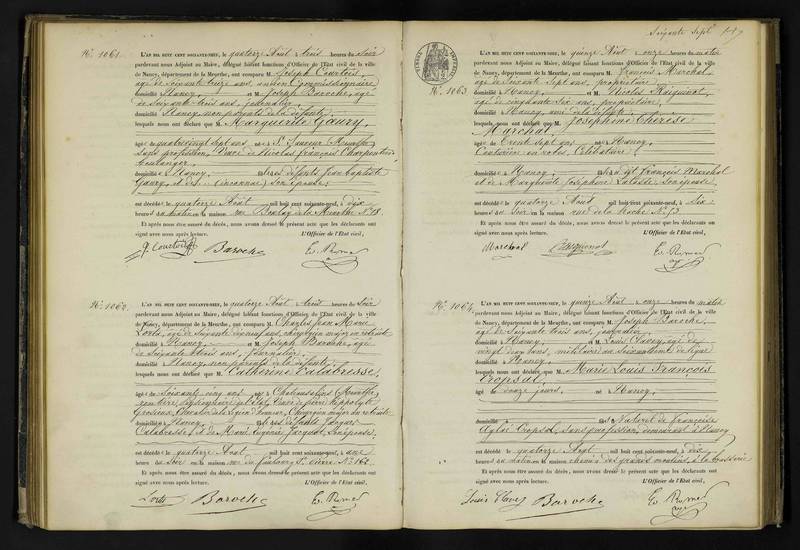 N° 1061.
L'AN MIL HUIT CENT SOIXANTE-NEUF, le quatorze Août à trois heures du Soir
pardevant nous Adjoint au Maire, délégué faisant fonctions d'Officier de l'État civil de la ville
de Nancy, département de la Meurthe, ont comparu M. Joseph Courtois,
âgé de soixante ans, ancien Commissionnaire
domicilié à Nancy, et M. Joseph Baroche, âgé
de soixante trois ans, journalier,
domicilié à Nancy, non parents de la défunte,
lesquels nous ont déclaré que M. Marguerite Gaury,
âgé de quatrevingt sept ans, né à St Sauveur Meurthe
sans profession, Veuve de Nicolas François Charpentier
boulanger,
domicilié à Nancy, fille des défunts Jean Baptiste
Gaury, et de (inconnue) son épouse,
est décédé le quatorze Août mil huit cent soixante-neuf, à dix
heures du matin en la maison rue de la Meurthe N° 18.
Et après nous être assuré du décès, nous avons dressé le présent acte que les déclarants ont
signé avec nous après lecture. L'Officier de l'État civil,
J. Courtois Baroche
N° 1062.
L'AN MIL HUIT CENT SOIXANTE-NEUF, le quatorze Août à trois heures du Soir
pardevant nous Adjoint au Maire, délégué faisant fonctions d'Officier de l'État civil de la ville
de Nancy, département de la Meurthe, ont comparu M. Charles Jean Marie
âgé de soixante neuf ans, chirurgien major en retraite
domicilié à Nancy, et M. Joseph Baroche, âgé
de soixante trois ans, journalier,
domicilié à Nancy, non parents de la défunte,
lesquels nous ont déclaré que M. Catherine Calabresse,
âgé de soixante cinq ans, né à Chateausalins (Meurthe)
Veuve de pierre Hippolyte
Chevalier de la Légion d'honneur, Chirurgien major en retraite
domicilié à Nancy, fille des défunts Jacques
Calabresse, et de Marie Eugénie Jacquot, son épouse,
est décédé le quatorze Août mil huit cent soixante-neuf, à une
heure du Soir en la maison rue du faubourg St pierre N° 162.
Et après nous être assuré du décès, nous avons dressé le présent acte que les déclarants ont
signé avec nous après lecture. L'Officier de l'État civil,
Baroche
Soixante Sept
N° 1063
L'AN MIL HUIT CENT SOIXANTE-NEUF, le quinze Août à onze heures du matin
pardevant nous Adjoint au Maire, délégué faisant fonctions d'Officier de l'État civil de la ville
de Nancy, département de la Meurthe, ont comparu M. François Marchal
âgé de soixante sept ans, propriétaire,
domicilié à Nancy, et M. Nicolas
âgé de cinquante six ans, propriétaire,
domicilié à Nancy, ami de la défunte,
lesquels nous ont déclaré que M. Joséphine Thérèse
Marchal,
âgé de trente sept ans, né à Nancy,
Couturière en robes, Célibataire,
domicilié à Nancy, fille de François Marchal
et de Marguerite Joséphine son épouse,
est décédé le quatorze Août mil huit cent soixante-neuf, à Six
heures du Soir en la maison rue de la Hache N° 73
Et après nous être assuré du décès, nous avons dressé le présent acte que les déclarants ont
signé avec nous après lecture. L'Officier de l'État civil,
Marchal
N° 1064.
L'AN MIL HUIT CENT SOIXANTE-NEUF, le quinze Août à onze heures du matin
pardevant nous Adjoint au Maire, délégué faisant fonctions d'Officier de l'État civil de la ville
de Nancy, département de la Meurthe, ont comparu M. Joseph Baroche,
âgé de soixante trois ans, journalier,
domicilié à Nancy, et M. Louis âgé de
vingt deux ans, militaire au Soixantième de ligne
domicilié à Nancy,
lesquels nous ont déclaré que M. Marie Louis François
Tropsal,
âgé de douze jours, né à Nancy,
domicilié fils Naturel de Françoise
Tropsal, sans profession, demeurant à Nancy
est décédé le quatorze Août mil huit cent soixante-neuf, à dix
heures du matin en la maison chemin des grands moulins, à la brasserie
Et après nous être assuré du décès, nous avons dressé le présent acte que les déclarants ont
signé avec nous après lecture. L'Officier de l'État civil,
Louis Baroche